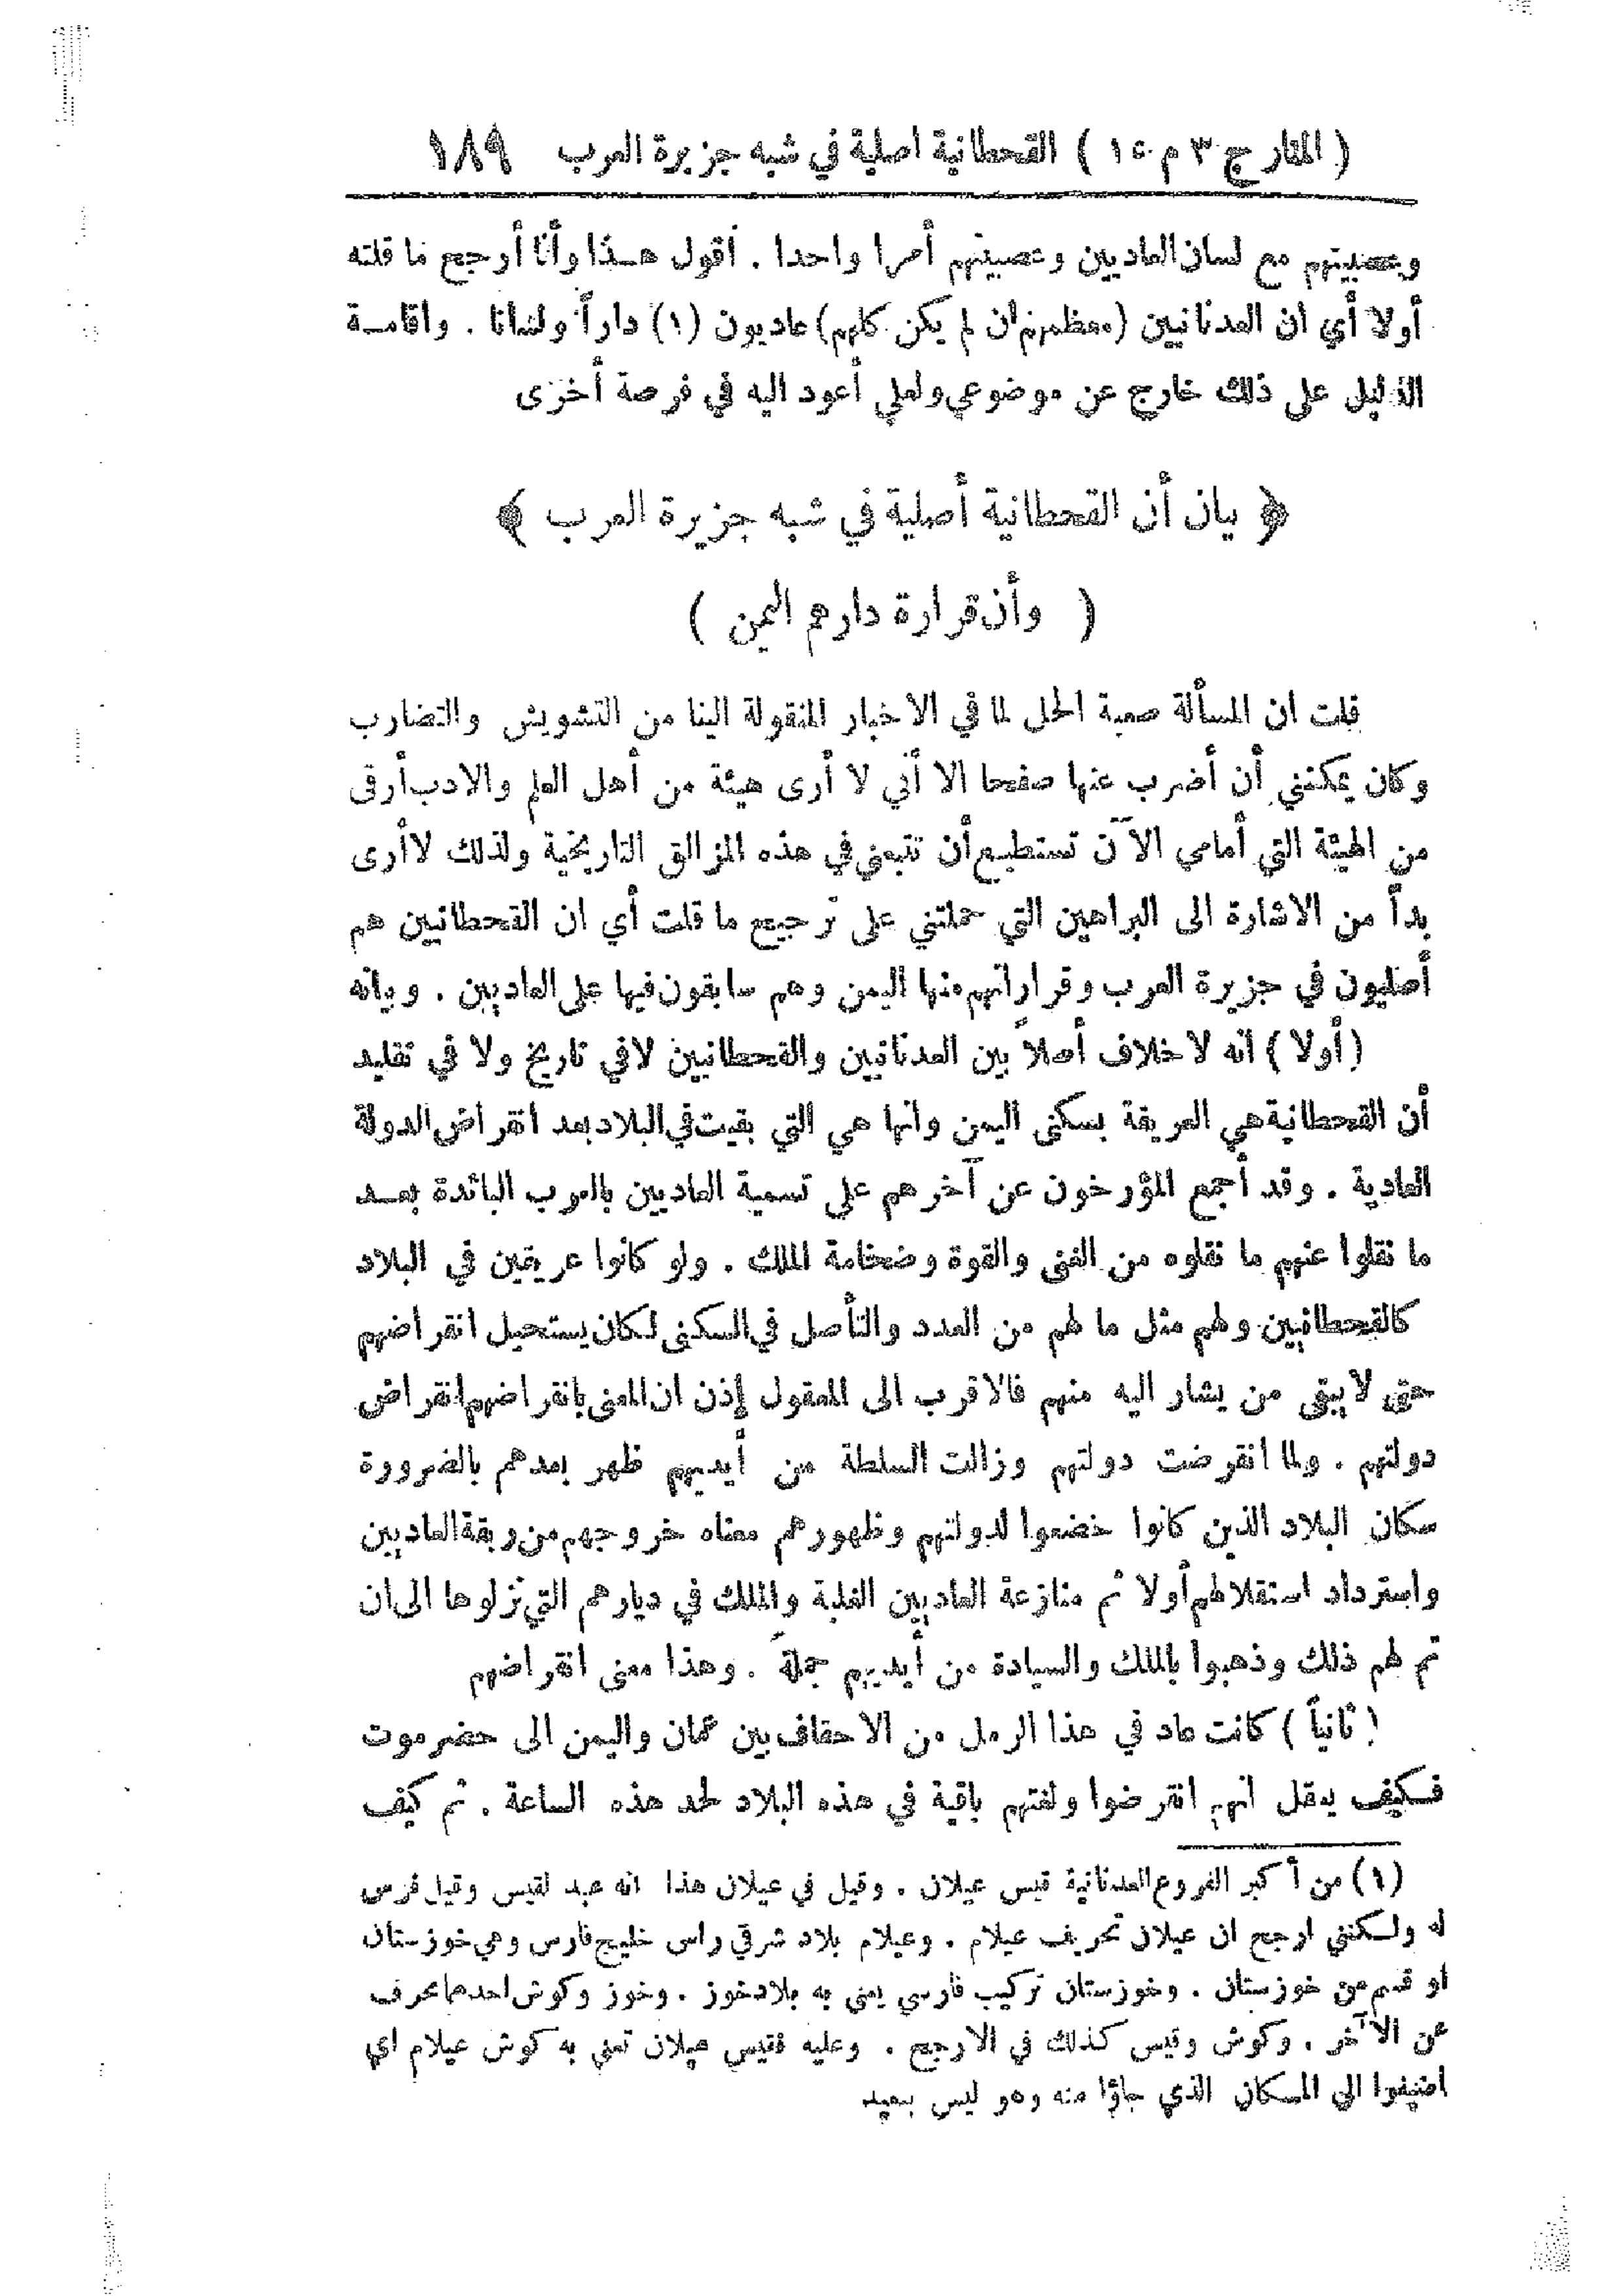 ( المنار ج ٣ م ١٤ ) القحطانية اصلية في شبه جزيرة العرب ١٨٩
وعصبيتهم مع لسان العاديين وعصبيتهم أمرا واحدا . أقول هـذا وأنا أرجح ما قلته
أولا أي ان العدنانيين (معظمهم ان لم يكن كلهم) عاديون (١) داراً ولسانا . واقامـة
الدليل على ذلك خارج عن موضوعي ولعلي أعود اليه في فرصة أخرى
﴿ بيان أن القحطانية أصلية في شبه جزيرة العرب ﴾
( وأن قرارة دارهم اليمن )
قلت ان المسألة صعبة الحل لما في الاخبار المنقولة الينا من التشويش والتضارب
وكان يمكنني أن أضرب عنها صفحا الا أني لا أرى هيئة من أهل العلم والادب أرقى
من الهيئة التي أمامي الآن تستطيع أن تتبعني في هذه المزالق التاريخية ولذلك لا أرى
بداً من الاشارة الى البراهين التي حملتني على ترجيح ما قلت أي ان القحطانيين هم
أصليون في جزيرة العرب وقراراتهم منها اليمن وهم سابقون فيها على العاديين . وبيانه
(أولا) انه لا خلاف أصلاً بين العدنانيين والقحطانيين لا في تاريخ ولا في تقليد
أن القحطانية هي العريقة بسكنى اليمن وانها هي التي بقيت في البلاد بعد انقراض الدولة
العادية . وقد أجمع المؤرخون عن آخرهم على تسمية العاديين بالعرب البائدة بعـد
ما نقلوا عنهم ما نقلوه من الغنى والقوة وضخامة الملك . ولو كانوا عريقين في البلاد
كالقحطانيين ولهم مثل ما لهم من العدد والتأصل في السكنى لـكان يستحيل انقراضهم
حتى لا يبقى من يشار اليه منهم فالاقرب الى المعقول إذن ان المعنى بانقراضهم انقراض
دولتهم . ولما انقرضت دولتهم وزالت السلطة من أيديهم ظهر بعدهم بالضرورة
سكان البلاد الذين كانوا خضعوا لدولتهم وظهورهم معناه خروجهم من ربقة العاديين
واسترداد استقلالهم أولا ثم منازعة العاديين الغلبة والملك في ديارهم التي نزلوها الى ان
تم لهم ذلك وذهبوا بالملك والسيادة من أيديهم جملةً . وهذا معنى انقراضهم
(ثانياً) كانت عاد في هذا الرمل من الاحقاف بين عمان واليمن الى حضرموت
فـكيف يعقل انهم انقرضوا ولغتهم باقية في هذه البلاد لحد هذه الساعة . ثم كيف
(١) من أكبر الفروع العدنانية قيس عيلان . وقيل في عيلان هذا انه عبد لقيس وقيل فرس
له ولـكنني ارجح ان عيلان تحريف عيلام . وعيلام بلاد شرقي راس خليج فارس وهي خوزستان
او قسم من خوزستان . وخوزستان تركيب فارسي يعني به بلاد خوز . وخوز وكوش احدهما محرف
عن الآخر . وكوش وقيس كذلك في الارجح . وعليه فقيس عيلان تعني به كوش عيلام اي
اضيفوا الى المـكان الذي جاؤا منه وهو ليس ببعيد